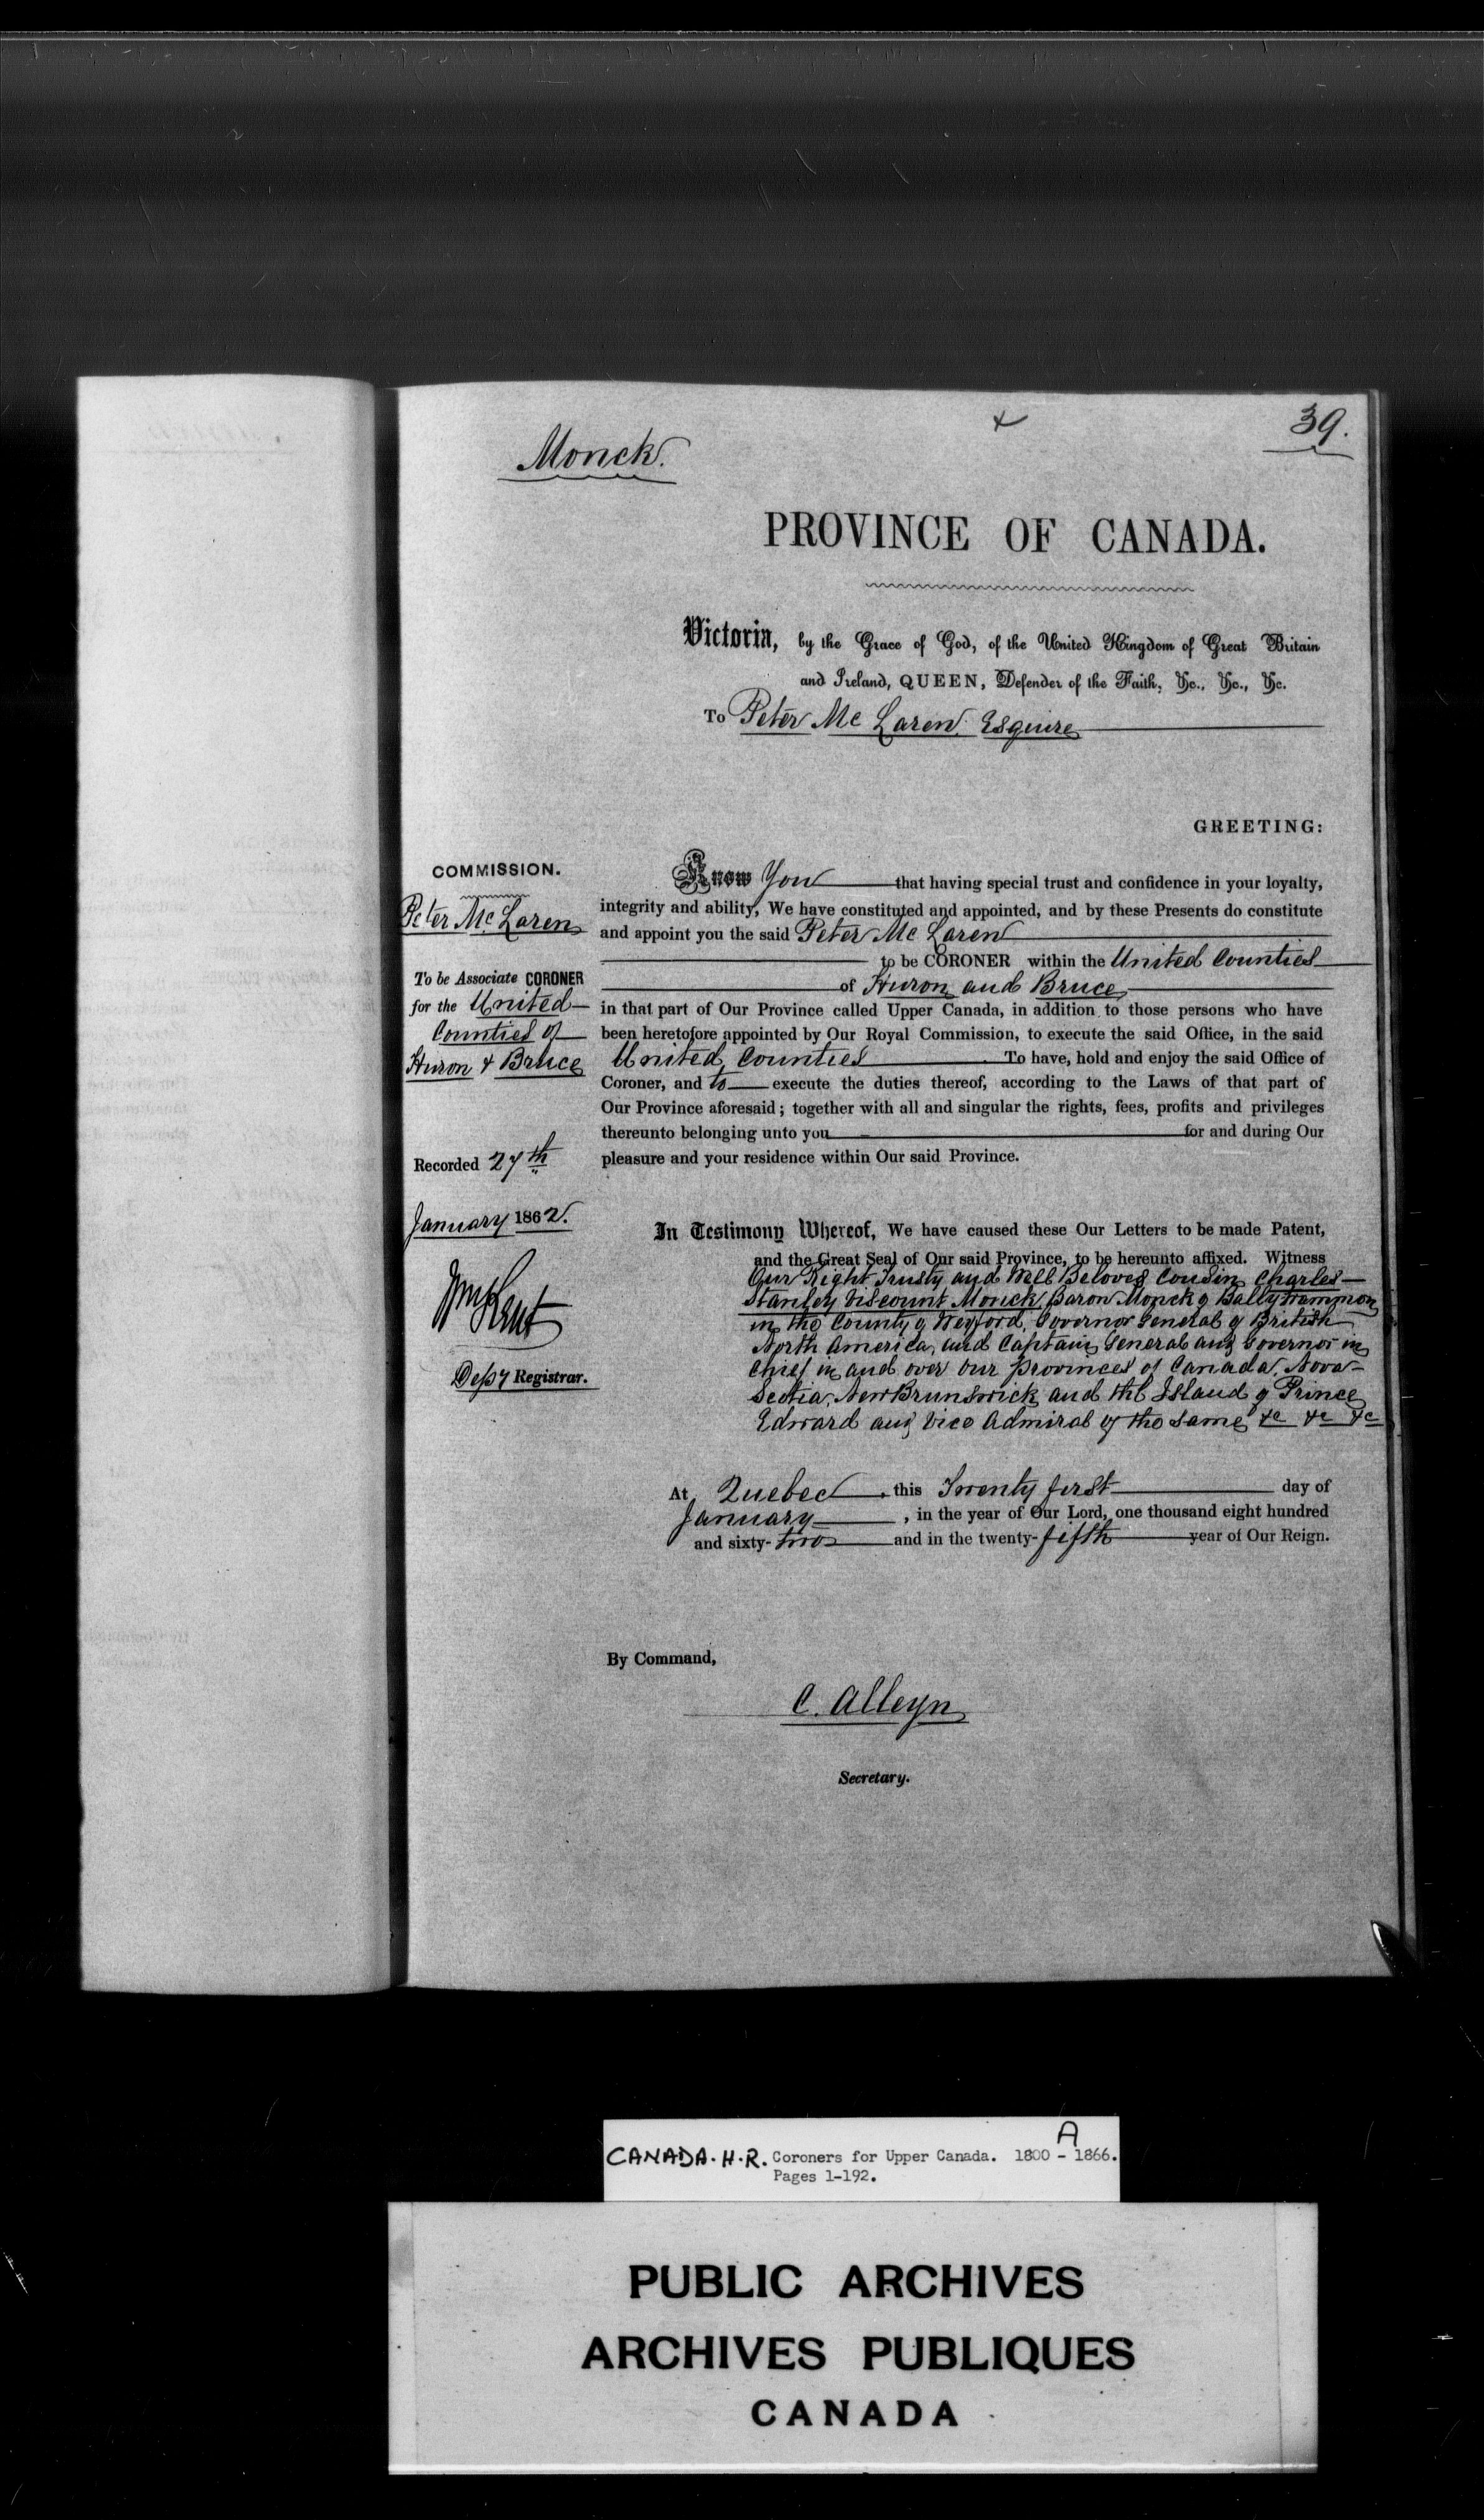 39.
Monck.
PROVINCE OF CANADA.
Victoria, by the Grace of God, of the United Kingdom of Great Britain
and Ireland, QUEEN, Defender of the Faith, &c., &c., &c.
To Peter Mc Laren Esquire
GREETING:
COMMISSION.
Peter Mc Laren
To be Associate CORONER
for the United
Counties of
Huron & Bruce
Recorded 27th
January 1862.
Wm Kent
Depy Registrar.
Know You that having special trust and confidence in your loyalty,
integrity and ability, We have constituted and appointed, and by these Presents do constitute
and appoint you the said Peter Mc Laren
to be CORONER within the United Counties
of Huron and Bruce
in that part of Our Province called Upper Canada, in addition to those persons who have
been heretofore appointed by Our Royal Commission, to execute the said Office, in the said
United Counties To have, hold and enjoy the said Office of
Coroner, and to execute the duties thereof, according to the Laws of that part of
Our Province aforesaid; together with all and singular the rights, fees, profits and privileges
thereunto belonging unto you for and during Our
pleasure and your residence within Our said Province.
In Testimony Whereof, We have caused these Our Letters to be made Patent,
and the Great Seal of Our said Province, to be hereunto affixed. Witness
Our Right Trusty and Well Beloved Cousin Charles
Stanley Viscount Monck Baron Monck of Ballytrammon
in the County of Wexford, Governor General of British
North America, and Captain General and Governor in
Chief in and over our Provinces of Canada, Nova
Scotia, New Brunswick and the Island of Prince
Edward and Vice Admiral of the same &c &c &c
At Quebec, this Twenty first day of
January, in the year of Our Lord, one thousand eight hundred
and sixty-two and in the twenty-fifth year of Our Reign.
By Command,
C. Alleyn
Secretary.
A
CANADA. H.R. Coroners for Upper Canada. 1800 - 1866.
Pages 1-192.
PUBLIC ARCHIVES
ARCHIVES PUBLIQUES
CANADA